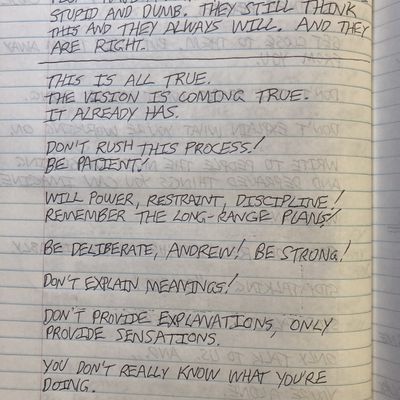 STUPID AND DUMB. THEY STILL THINK
THIS AND THEY ALWAYS WILL. AND THEY
ARE RIGHT.
THIS IS ALL TRUE.
THE VISION IS COMING TRUE.
IT ALREADY HAS.
DON'T RUSH THIS PROCESS!
BE PATIENT!
WILL POWER, RESTRAINT, DISCIPLINE!
REMEMBER THE LONG-RANGE PLANS!
BE DELIBERATE, ANDREW! BE STRONG!
DON'T EXPLAIN MEANINGS!
DON'T PROVIDE EXPLANATIONS, ONLY
PROVIDE SENSATIONS.
YOU DON'T REALLY KNOW WHAT YOU'RE
DOING.